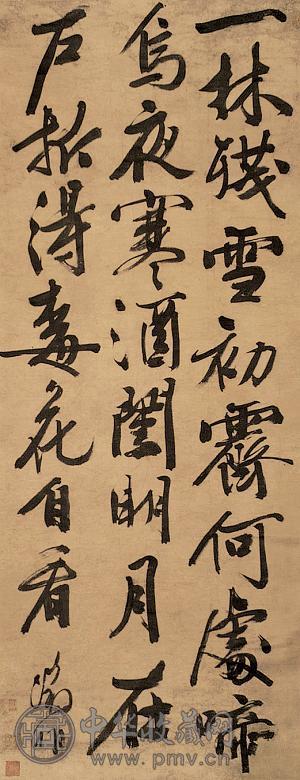 一林殘雪初霽何處啼
烏夜寒酒闌明月在
戶折得梅花自看
中华收藏网
www.pmv.cn